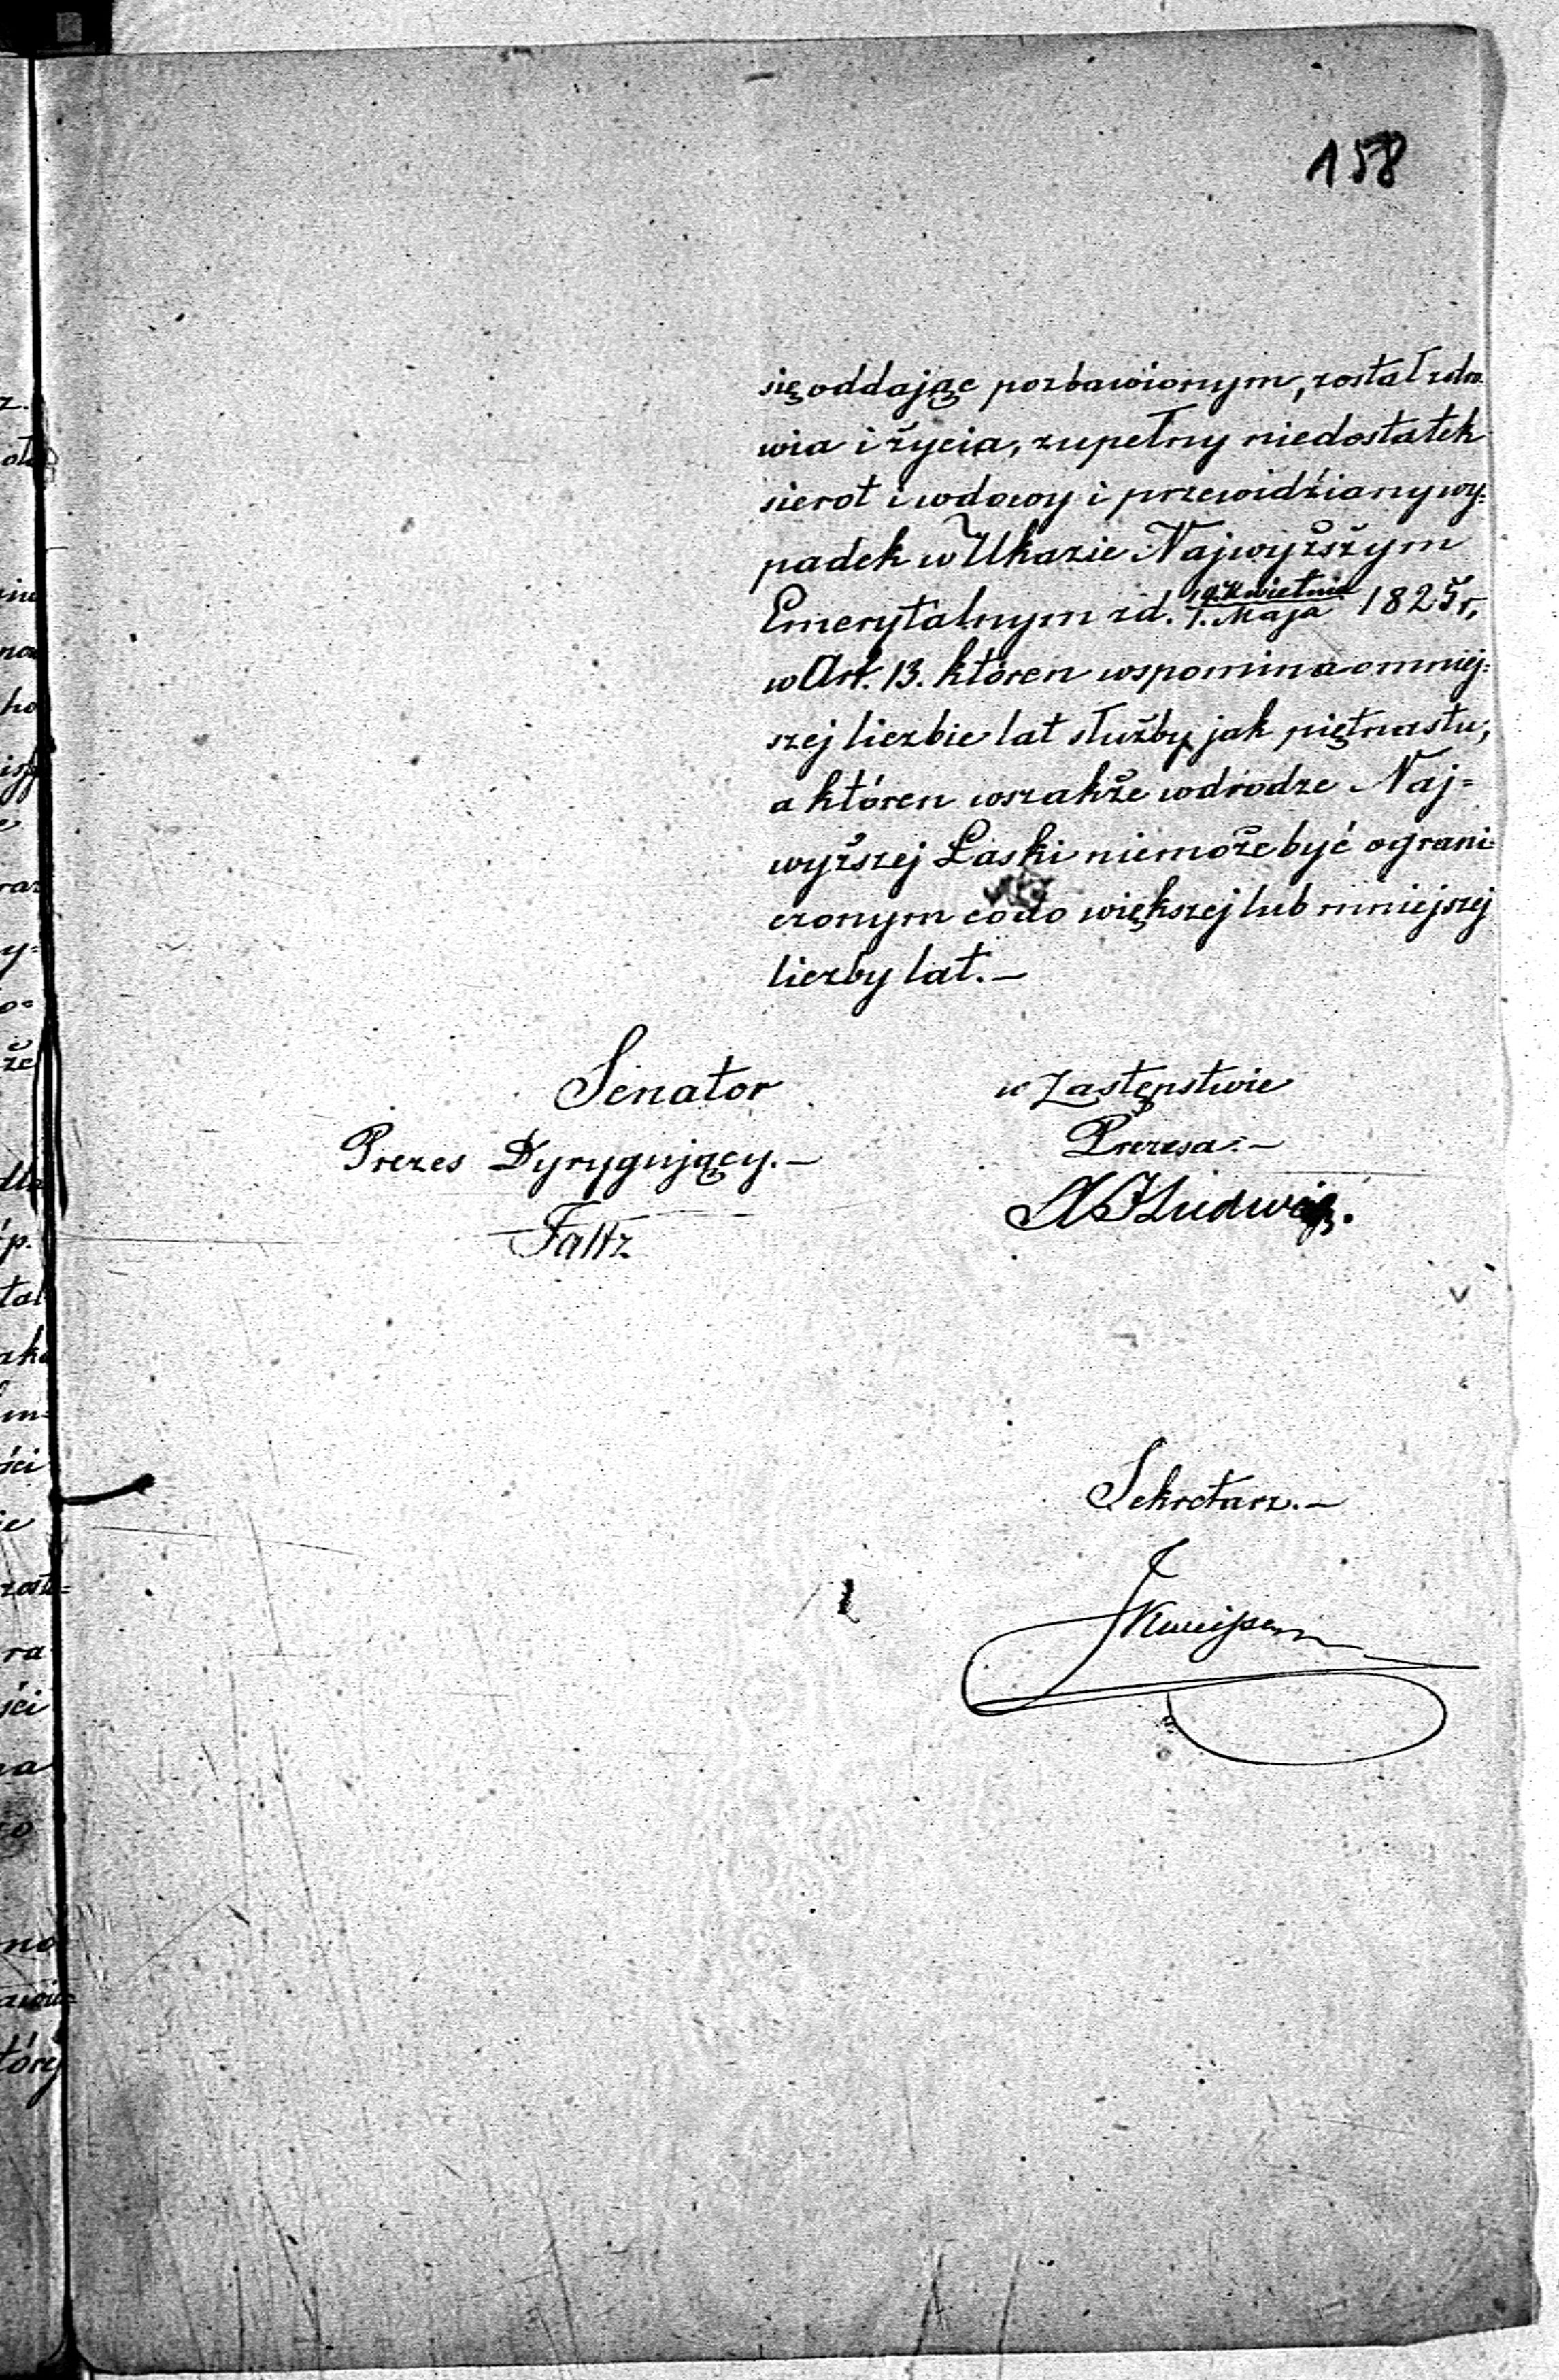 158
się oddając pozbawionym, został zdro
wia i życia, zupełny niedostatek
sierot i wdowy i przewidziany wy=
padek w Ukazie Najwyższym
Emerytalnym z d. 19. Kwietnia / 1. Maja 1825 r,
w Art. 13. któren wspomina o mniej=
szej liczbie lat służby jak piętnastu,
a któren wszakże w drodze Naj=
wyższej Łaski niemoże być ograni=
czonym codo większej lub mniejszej
liczby lat.—
Senator
Prezes Dyrygujący.—
Faltz
w Zastępstwie
Prezesa.—
Ludwig.
Sekretarz.—